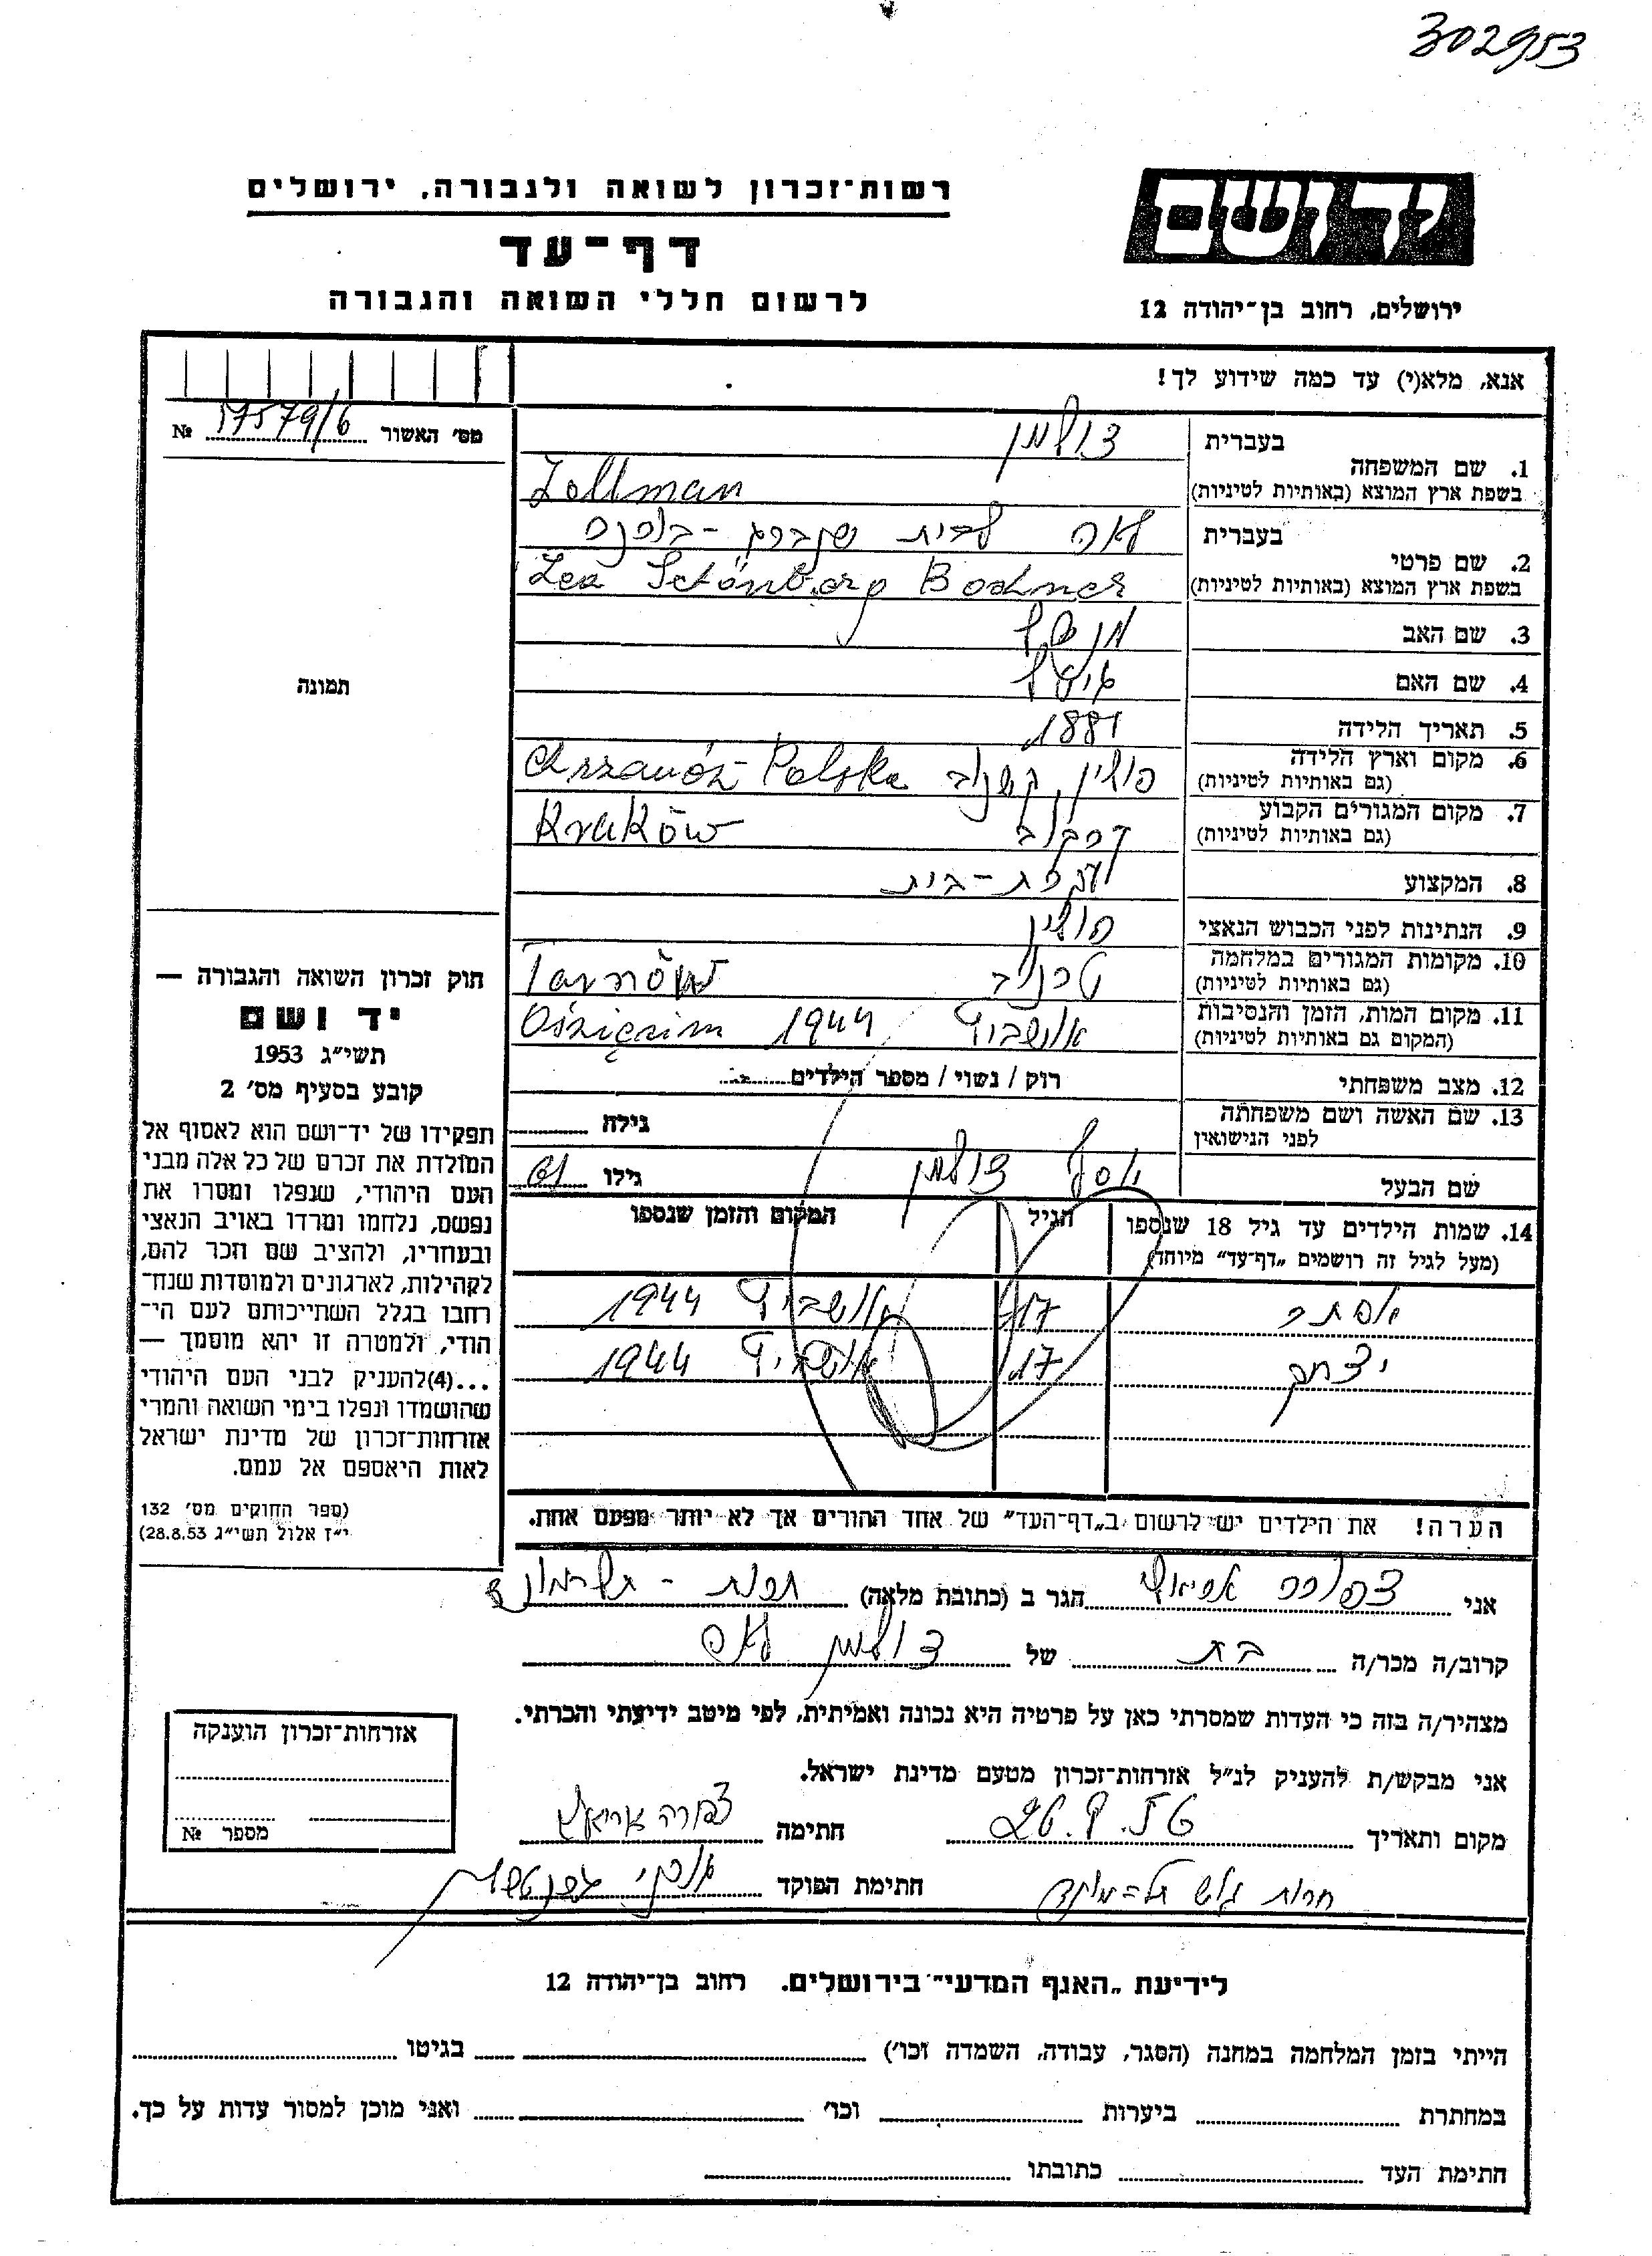 302953
רשות־זכרון לשואה ולגבורה, ירושלים
יד ושם
דף־עד
לרשום חללי השואה והגבורה
ירושלים, רחוב בן־יהודה 12
אנא, מלא(י) עד כמה שידוע לך!
מס׳ האשור 17579/6 №
תמונה
1. שם המשפחה
בעברית צולמן
בשפת ארץ המוצא (באותיות לטיניות) Zollman
2. שם פרטי
בעברית לאה לבית שנברג -
בשפת ארץ המוצא (באותיות לטיניות) Lea Schönberg Bochner
3. שם האב
4. שם האם
5. תאריך הלידה 1881
6. מקום וארץ הלידה פולין
(גם באותיות לטיניות) Polska
7. מקום המגורים הקבוע קרקוב
(גם באותיות לטיניות) Kraków
8. המקצוע עקרת-בית
9. הנתינות לפני הכבוש הנאצי פולין
10. מקומות המגורים במלחמה טרנוב
(גם באותיות לטיניות) Tarnów
11. מקום המות, הזמן והנסיבות אושביץ 1944
(המקום גם באותיות לטיניות) Oświęcim
12. מצב משפחתי רוק / נשוי / מספר הילדים
13. שם האשה ושם משפחתה
לפני הנישואין
גילה
שם הבעל יוסף צולמן גילו 61
14. שמות הילדים עד גיל 18 שנספו
(מעל לגיל זה רושמים „דף־עד” מיוחד)
הגיל
המקום והזמן שנספו
אסתר 17 אושביץ 1944
יצחק 17 אושביץ 1944
הערה! את הילדים יש לרשום ב„דף־העד” של אחד ההורים אך לא יותר מפעם אחת.
חוק זכרון השואה והגבורה —
יד ושם
תשי״ג 1953
קובע בסעיף מס׳ 2
תפקידו של יד־ושם הוא לאסוף אל
המולדת את זכרם של כל אלה מבני
העם היהודי, שנפלו ומסרו את
נפשם, נלחמו ומרדו באויב הנאצי
ובעוזריו, ולהציב שם וזכר להם,
לקהילות, לארגונים ולמוסדות שנח־
רבו בגלל השתייכותם לעם הי־
הודי, ולמטרה זו יהא מוסמך —
...(4) להעניק לבני העם היהודי
שהושמדו ונפלו בימי השואה והמרי
אזרחות־זכרון של מדינת ישראל
לאות היאספם אל עמם.
(ספר החוקים מס׳ 132
י״ז אלול תשי״ג 28.8.53)
אני צפורה הגר ב (כתובת מלאה)
קרוב/ה מכר/ה בת של צולמן לאה
מצהיר/ה בזה כי העדות שמסרתי כאן על פרטיה היא נכונה ואמיתית, לפי מיטב ידיעתי והכרתי.
אני מבקש/ת להעניק לנ״ל אזרחות־זכרון מטעם מדינת ישראל.
מקום ותאריך חתימה צפורה
חתימת הפוקד
אזרחות־זכרון הוענקה
מספר №
לידיעת „האגף המדעי” בירושלים. רחוב בן־יהודה 12
הייתי בזמן המלחמה במחנה (הסגר, עבודה, השמדה וכו׳) בגיטו
במחתרת ביערות וכו׳ ואני מוכן למסור עדות על כך.
חתימת העד כתובתו